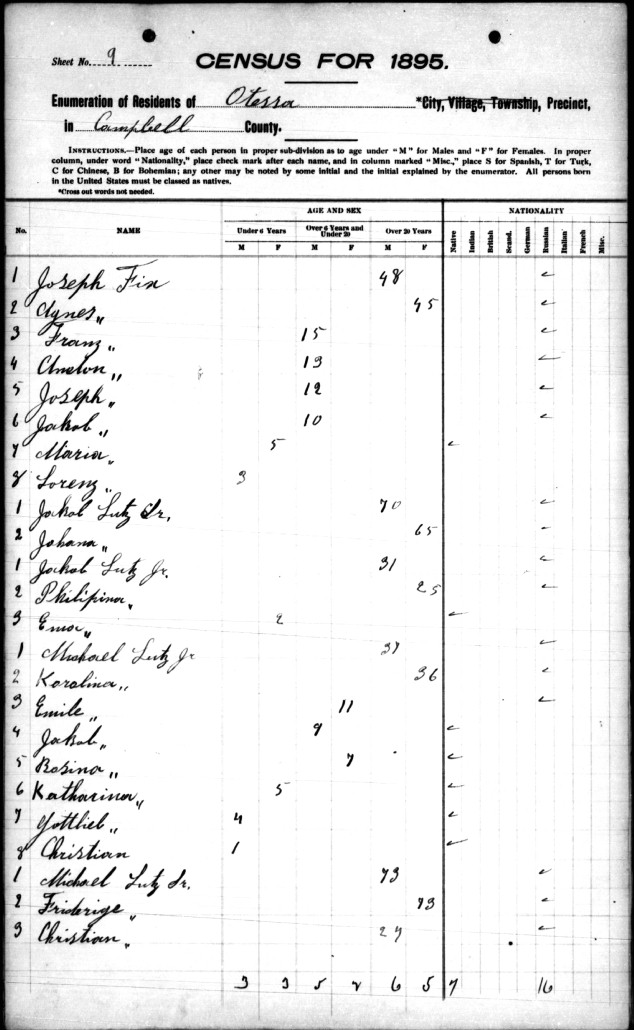 Sheet No. 9
CENSUS FOR 1895.
Enumeration of Residents of Otessa *City, Village, Township, Precinct,
in Campbell County.
INSTRUCTIONS.—Place age of each person in proper sub-division as to age under "M" for Males and "F" for Females. In proper
column, under word "Nationality," place check mark after each name, and in column marked "Misc.," place S for Spanish, T for Turk,
C for Chinese, B for Bohemian; any other may be noted by some initial and the initial explained by the enumerator. All persons born
in the United States must be classed as natives.
*Cross out words not needed.
AGE AND SEX NATIONALITY
No. NAME Under 6 Years Over 6 Years and Under 20 Over 20 Years Native Indian British Scand. German Russian Italian French Misc.
M F M F M F
1 Joseph Fix 48 ✓
2 Agnes " 45 ✓
3 Franz " 15 ✓
4 Aneton " 13 ✓
5 Joseph " 12 ✓
6 Jakob " 10 ✓
7 Maria " 5 ✓
8 Lorenz " 3
1 Jakob Lutz Sr. 70 ✓
2 Johana " 65 ✓
1 Jakob Lutz Jr. 31 ✓
2 Philipina " 25 ✓
3 Ema " 2 ✓
1 Michael Lutz Jr 37 ✓
2 Karolina " 36 ✓
3 Emile " 11 ✓
4 Jakob " 9 ✓
5 Rosina " 7 ✓
6 Katharina " 5 ✓
7 Gottlieb " 4 ✓
8 Christian 1 ✓
1 Michael Lutz Sr. 73 ✓
2 Friderige " 73 ✓
3 Christian " 29 ✓
3 3 5 2 6 5 7 16